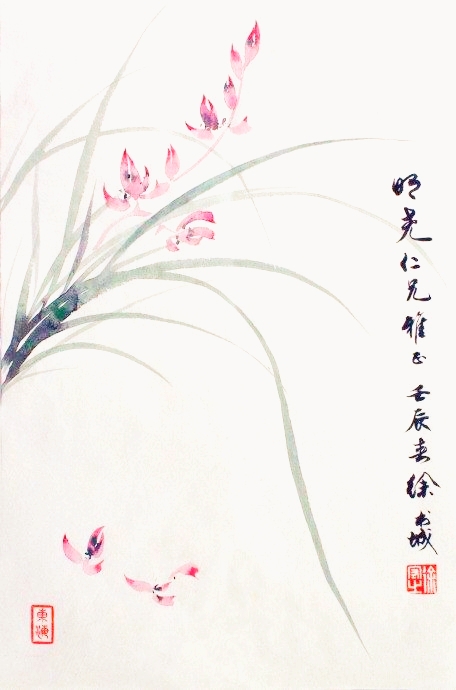 明尧仁兄雅正 壬辰春徐书城